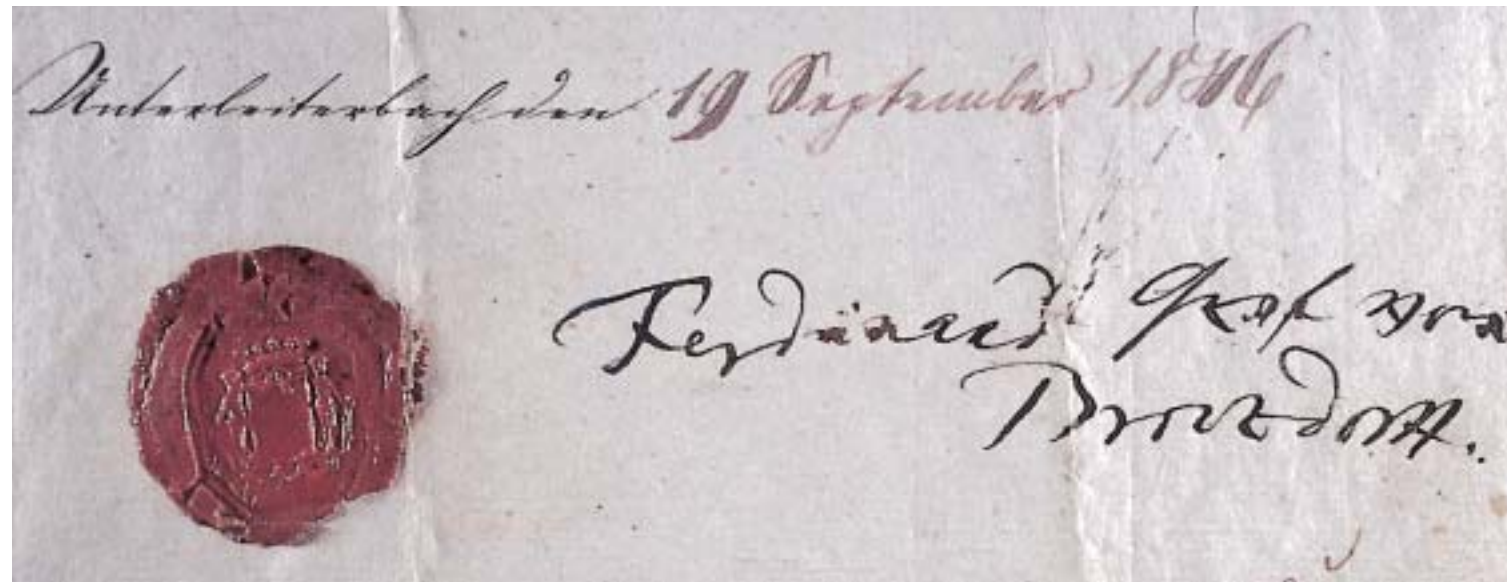 Unterleiterbach den 19 September 1846
Ferdinand Graf von
Brockdorff.